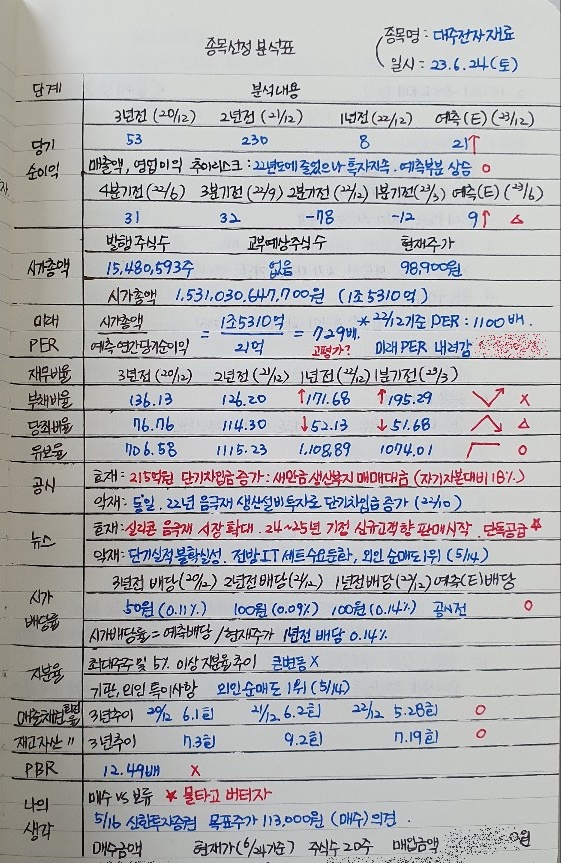 종목선정 분석표
종목명 : 대주전자재료
일시 : 23.6.24(토)
단계 분석내용
3년전 (20/12) 2년전 (21/12) 1년전 (22/12) 예측(E) (23/12)
당기 순이익
53 230 8 21↑
매출액, 영업이익 추이리스크 : 22년도에 줄었으나 흑자지속. 예측부분 상승 o
4분기전 (22/6) 3분기전 (22/9) 2분기전 (22/12) 1분기전(23/3) 예측(E) (23/6)
31 32 -78 -12 9↑ △
시가총액
발행주식수 교부예상주식수 현재주가
15,480,593주 없음 98,900원
시가총액 1,531,030,647,700원 (1조5310억)
미래 PER
시가총액 / 예측 연간당기순이익 = 1조5310억 / 21억 = 729배. * 22/12기준 PER : 1100배.
고평가? 미래PER 내려감
재무비율 3년전 (20/12) 2년전 (21/12) 1년전 (22/12) 1분기전 (23/3)
부채비율 136.13 126.20 ↑171.68 ↑195.29 x
당좌비율 76.76 114.30 ↓52.13 ↓51.68 △
유보율 706.58 1115.23 1,108.89 1074.01 o
공시
호재: 215억원 단기차입금 증가 : 새만금 생산복지 매매대금 (자기자본대비 18%)
악재: 동일. 22년 음극재 생산설비투자로 단기차입금 증가 (22/10)
뉴스
호재: 실리콘 음극재 시장 확대. 24~25년 기점 신규고객향 판매시작. 단독공급 *
악재: 단기실적 불확실성. 전방IT세트수요둔화, 외인 순매도 1위 (5/14)
시가 배당률
3년전 배당(20/12) 2년전배당(21/12) 1년전배당(22/12) 예측(E)배당
50원 (0.11%) 100원 (0.09%) 100원 (0.14%) 공시전 o
시가배당률 = 예측배당 / 현재주가 1년전 배당 0.14%
지분율
최대주주 및 5% 이상 지분율 추이 큰변동 x
기관, 외인 특이사항 외인순매도 1위 (5/14)
매출채권회전율 3년추이 20/12 6.1회 21/12 6.2회 22/12 5.28회 o
재고자산 〃 3년추이 7.3회 9.2회 7.19회 o
PBR 12.49배 x
나의 생각
매수 vs 보류 * 물타고 버티자
5/16 신한투자증권 목표주가 113,000원 (매수) 의견.
매수금액 현재가 (6/24기준) 주식수 20주 매입금액 원